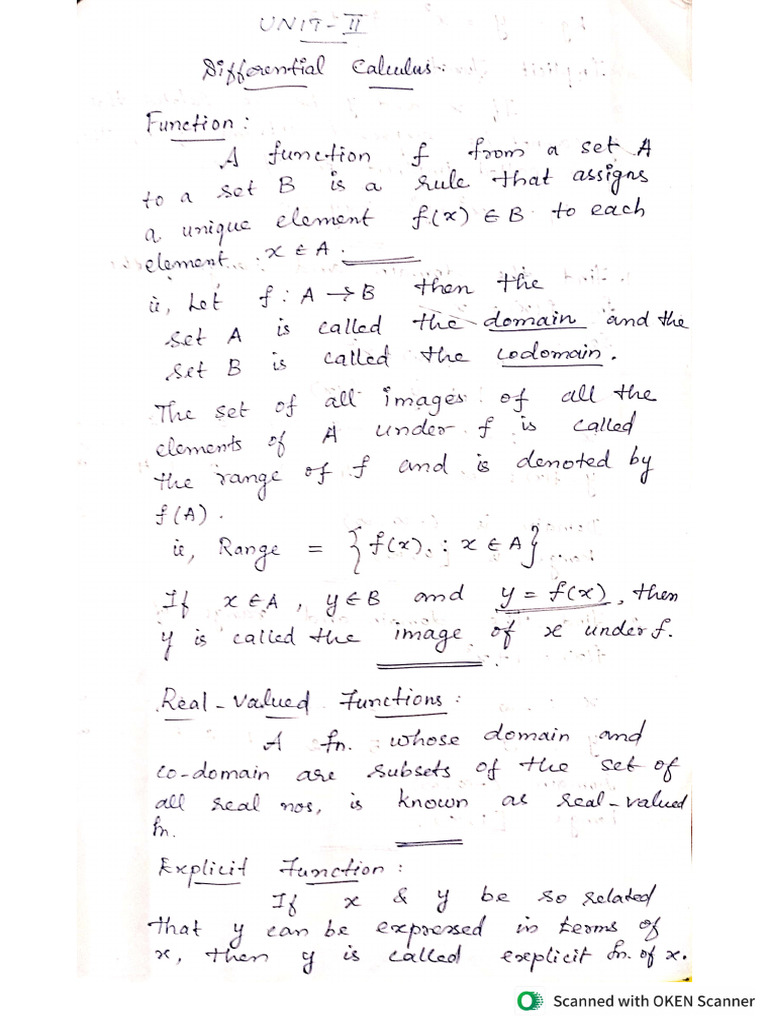 UNIT-II
Differential Calculus:
Function:
A function f from a set A
to a set B is a rule that assigns
a unique element f(x) ∈ B to each
element x ∈ A.
ie, Let f : A → B then the
set A is called the domain and the
set B is called the codomain.
The set of all images of all the
elements of A under f is called
the range of f and is denoted by
f(A).
ie, Range = {f(x) : x ∈ A}
If x ∈ A, y ∈ B and y = f(x), then
y is called the image of x under f.
Real-valued Functions:
A fn. whose domain and
co-domain are subsets of the set of
all real nos, is known as real-valued
fn.
Explicit Function:
If x & y be so related
that y can be expressed in terms of
x, then y is called explicit fn. of x.
Scanned with OKEN Scanner